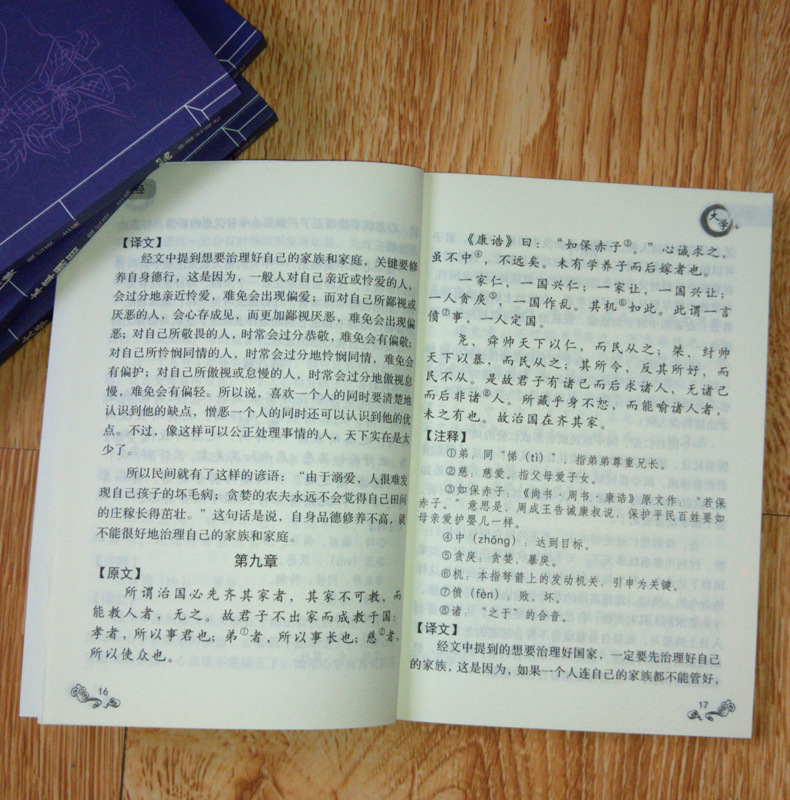 【译文】
经文中提到想要治理好自己的家族和家庭，关键要修
养自身德行，这是因为，一般人对自己亲近或怜爱的人，
会过分地亲近怜爱，难免会出现偏爱；而对自己所鄙视或
厌恶的人，会心存成见，而更加鄙视厌恶，难免会出现偏
恶；对自己所敬畏的人，时常会过分恭敬，难免会有偏敬；
对自己所怜悯同情的人，时常会过分地怜悯同情，难免会
有偏护；对自己所傲视或怠慢的人，时常会过分地傲视怠
慢，难免会有偏轻。所以说，喜欢一个人的同时要清楚地
认识到他的缺点，憎恶一个人的同时还可以认识到他的优
点。不过，像这样可以公正处理事情的人，天下实在是太
少了。
所以民间就有了这样的谚语：“由于溺爱，人很难发
现自己孩子的坏毛病；贪婪的农夫永远不会觉得自己田间
的庄稼长得茁壮。”这句话是说，自身品德修养不高，就
不能很好地治理自己的家族和家庭。
第九章
【原文】
所谓治国必先齐其家者，其家不可教，而
能教人者，无之。故君子不出家而成教于国：
孝者，所以事君也；弟①者，所以事长也；慈②者，
所以使众也。
16
大学
《康诰》曰：“如保赤子③。”心诚求之，
虽不中④，不远矣。未有学养子而后嫁者也。
一家仁，一国兴仁；一家让，一国兴让；
一人贪戾⑤，一国作乱。其机⑥如此。此谓一言
偾⑦事，一人定国。
尧、舜帅天下以仁，而民从之；桀、纣帅
天下以暴，而民从之；其所令，反其所好，而
民不从。是故君子有诸己而后求诸人，无诸己
而后非诸⑧人。所藏乎身不恕，而能喻诸人者，
未之有也。故治国在齐其家。
【注释】
①弟，同“悌（tì）”，指弟弟尊重兄长。
②慈：慈爱。指父母爱子女。
③如保赤子：《尚书·周书·康诰》原文作：“若保
赤子。”意思是，周成王告诫康叔说，保护平民百姓要如
母亲爱护婴儿一样。
④中（zhōng），达到目标。
⑤贪戾：贪婪，暴戾。
⑥机：本指弩箭上的发动机关，引申为关键。
⑦偾（fèn），败，坏。
⑧诸：“之于”的合音。
【译文】
经文中提到的想要治理好国家，一定要先治理好自己
的家族，这是因为，如果一个人连自己的家族都不能管好，
17